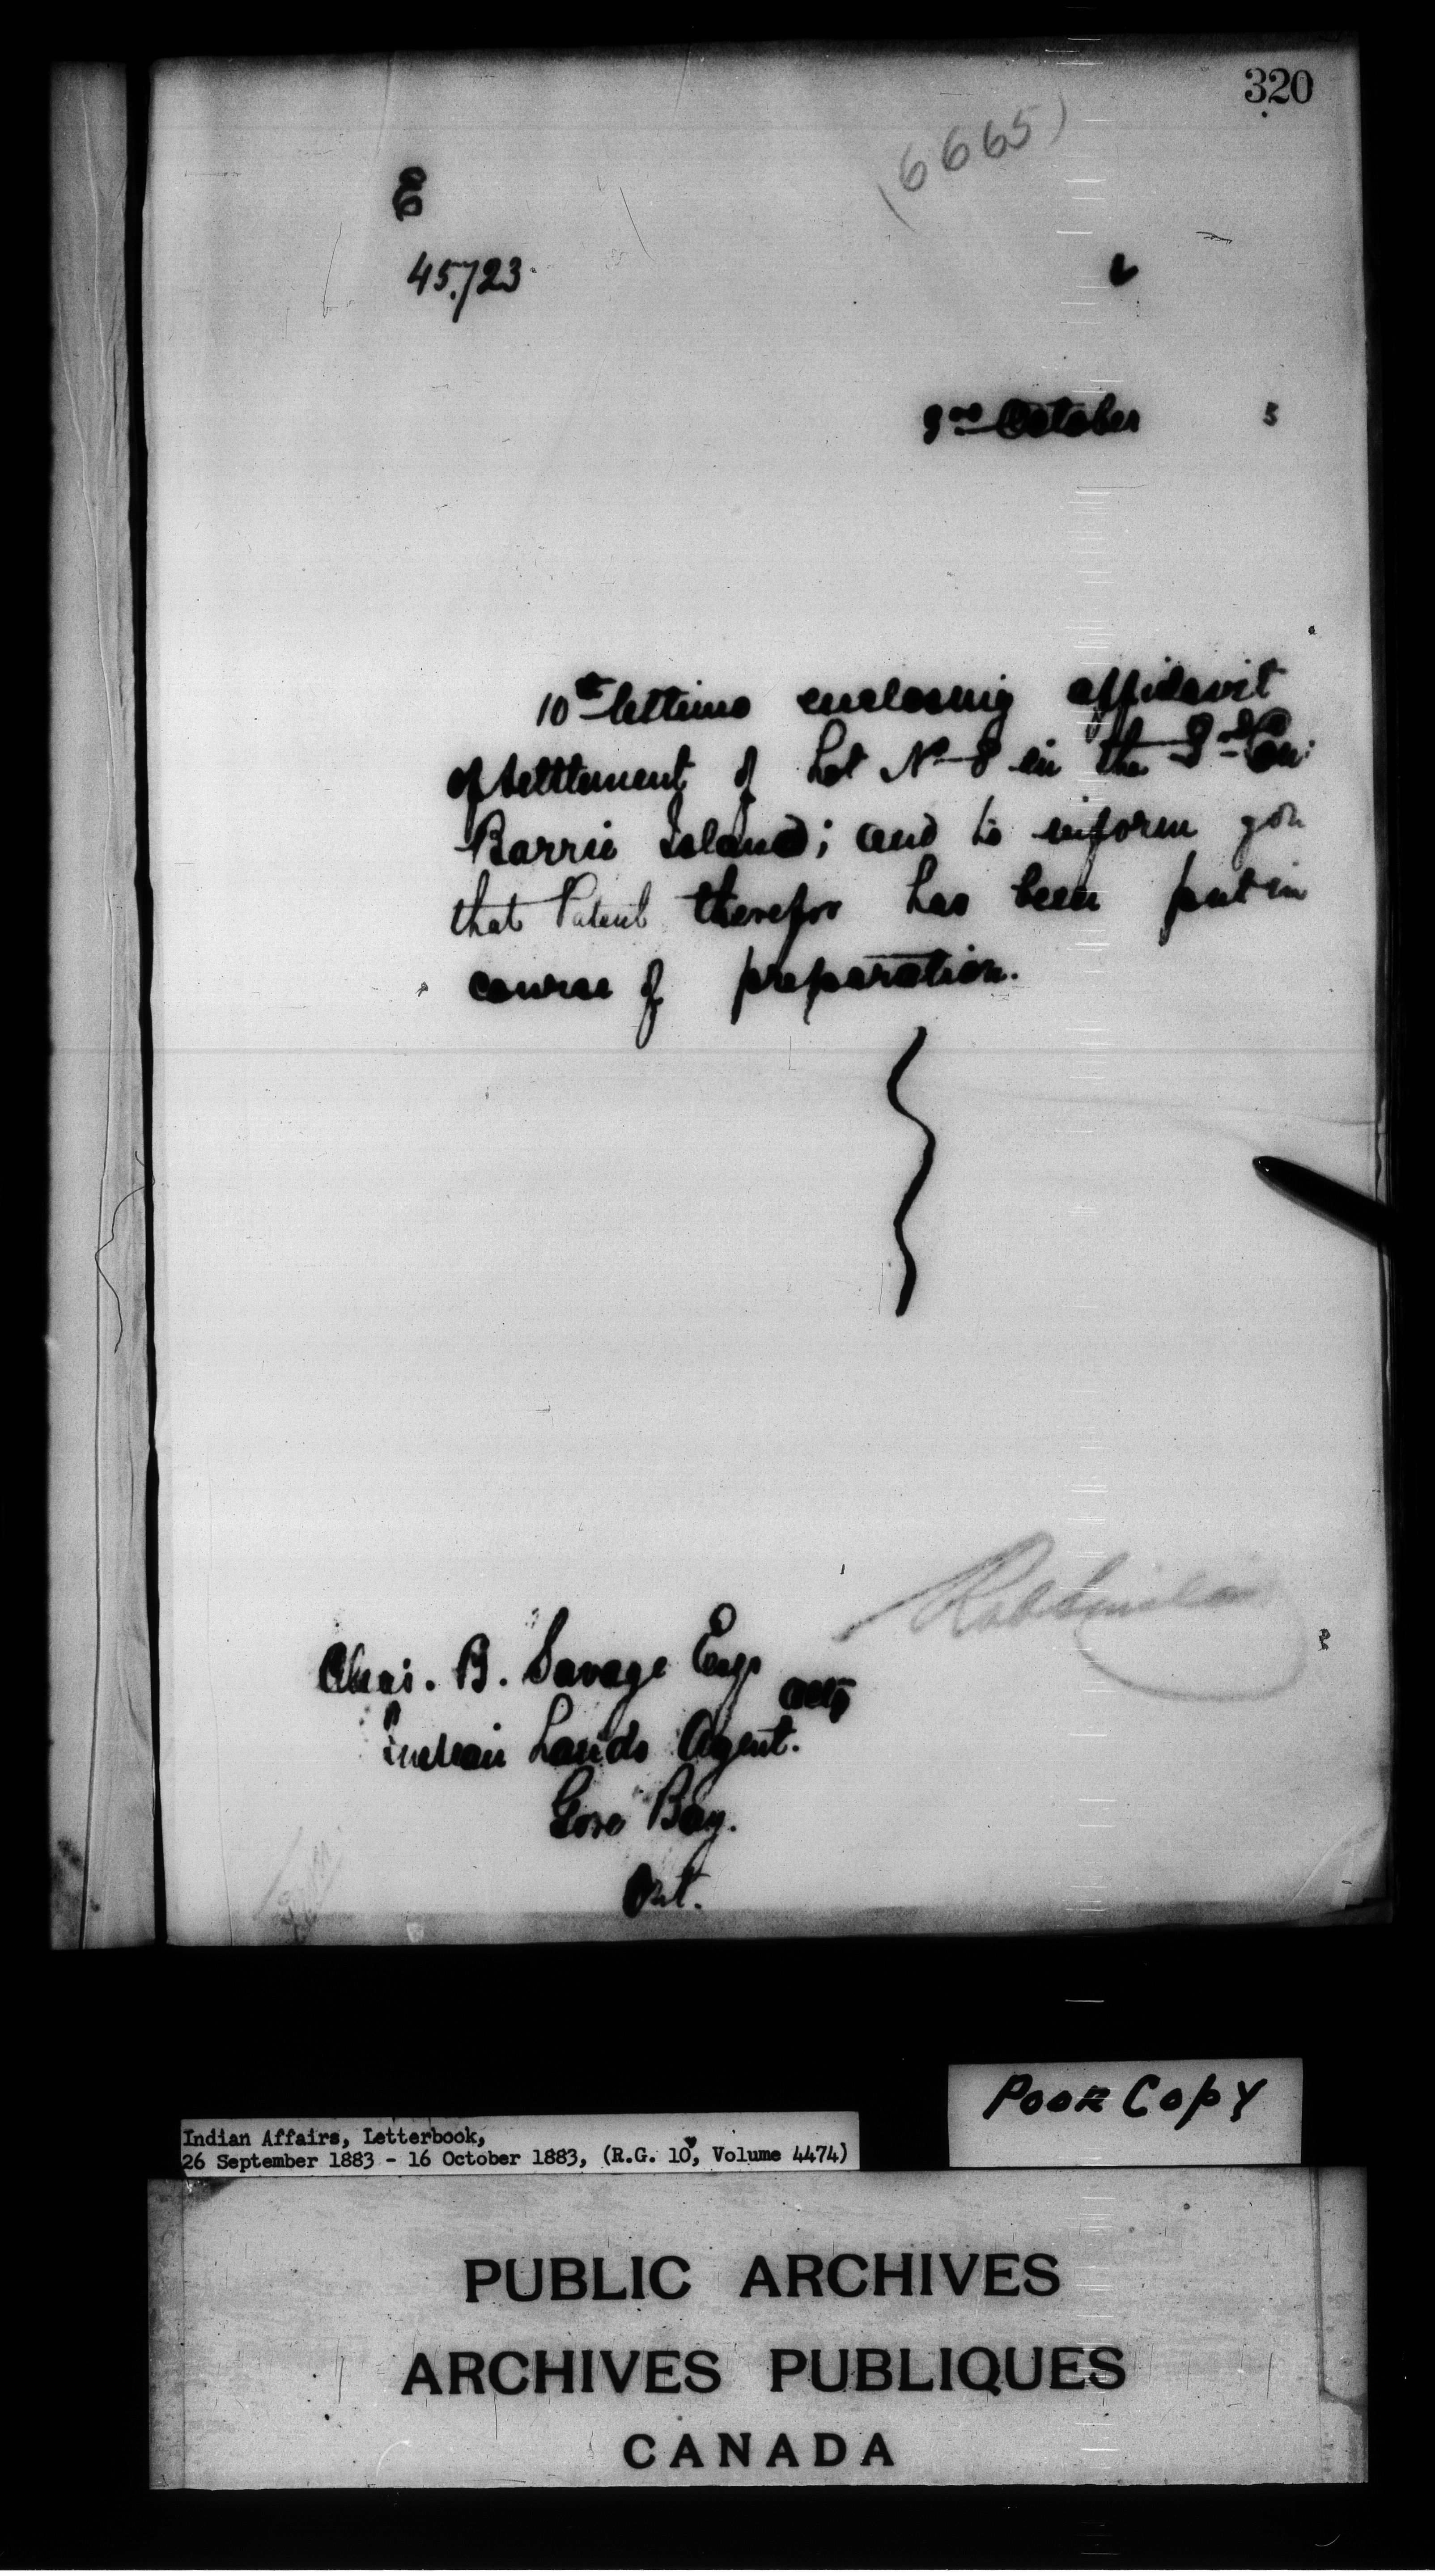 320
(6665)
E
45.723
3rd October 3
10th ultimo enclosing affidavit
of settlement of Lot No 8 in the 3rd Con:
Barrie Island; and to inform you
that Patent therefor has been put in
course of preparation.
Rob Sinclair
Chas. B. Savage Esqr
actg
Indian Lands Agent.
Gore Bay.
Ont.
POOR COPY
Indian Affairs, Letterbook,
26 September 1883 - 16 October 1883, (R.G. 10, Volume 4474)
PUBLIC ARCHIVES
ARCHIVES PUBLIQUES
CANADA